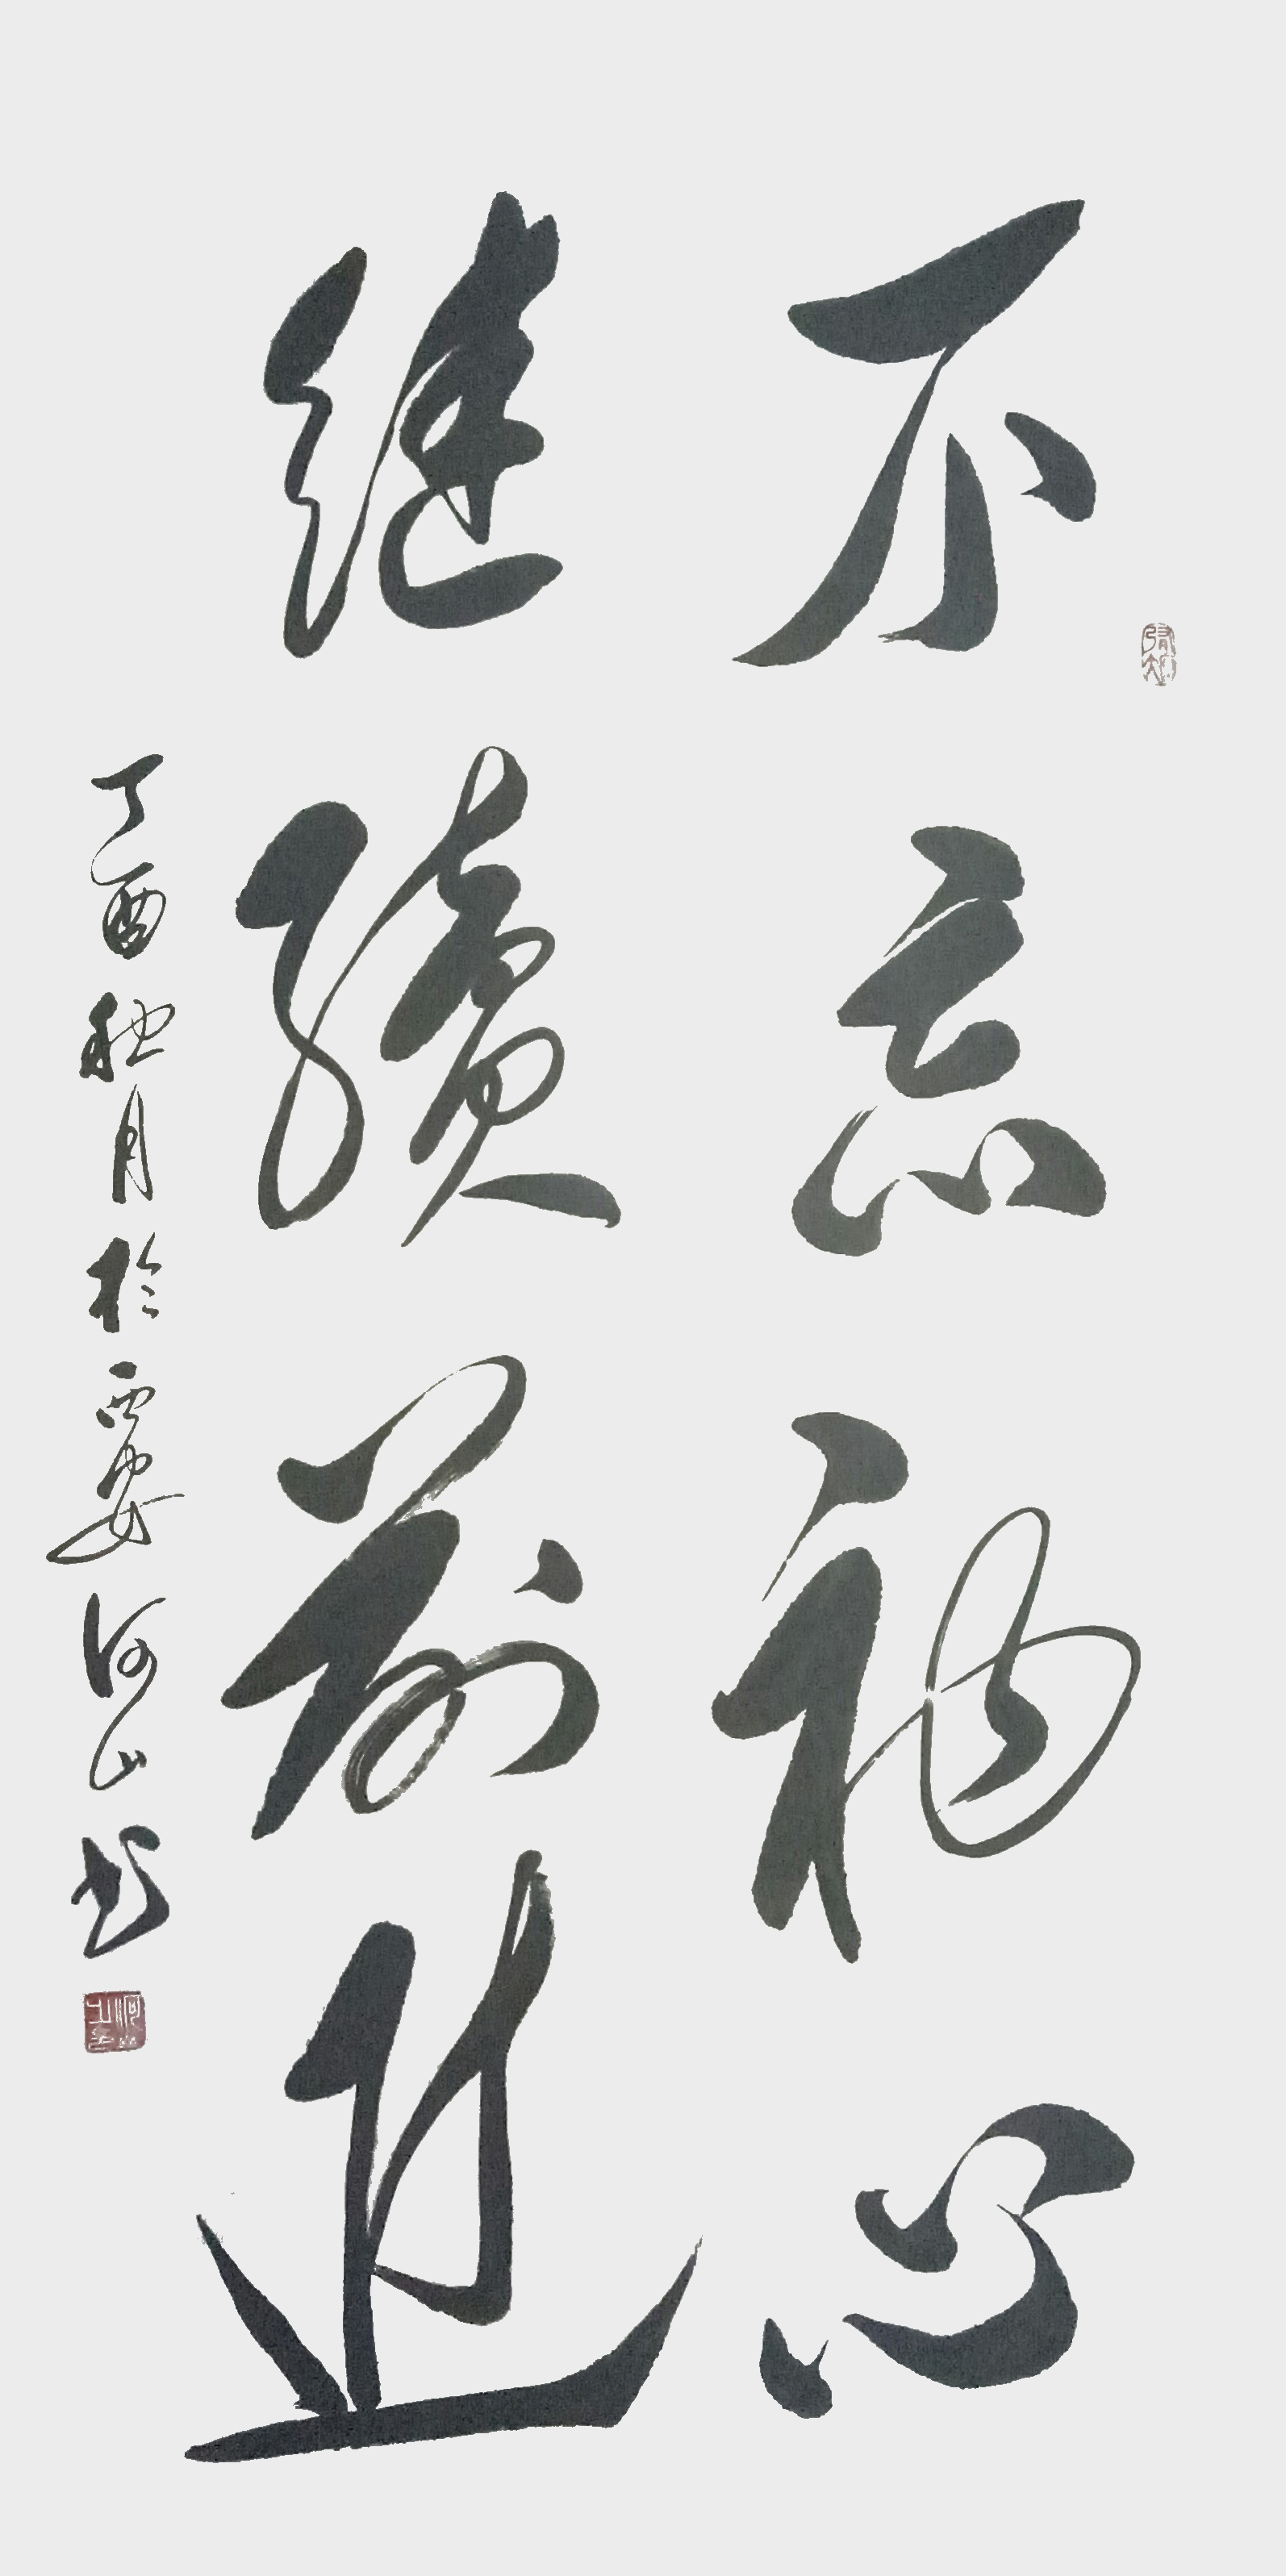 不忘初心
继续前进
丁酉秋月於西安河山书